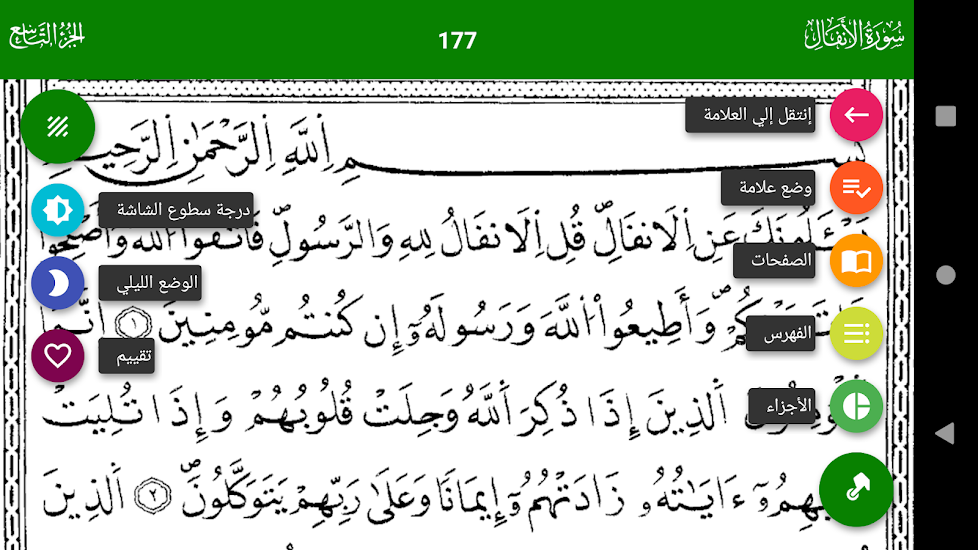 سُورَةُ الأَنفَالِ
177
الجُزْءُ التَّاسِعُ
إنتقل إلي العلامة
وضع علامة
الصفحات
الفهرس
الأجزاء
درجة سطوع الشاشة
الوضع الليلي
تقييم
بِسْمِ اِ۬للَّهِ اِ۬لرَّحْمَٰنِ اِ۬لرَّحِيمِ
عَنِ اِ۬لَانفَالِ قُلِ اِ۬لَانفَالُ لِلهِ وَالرَّسُولِ فَاتَّقُوا۟ اُ۬للَّهَ وَأَصْلِحُوا۟
وَأَطِيعُوا۟ اُ۬للَّهَ وَرَسُولَهُۥٓ إِن كُنتُم مُّومِنِينَ ١ إِنَّمَا
اَ۬لذِينَ إِذَا ذُكِرَ اَ۬للَّهُ وَجِلَتْ قُلُوبُهُمْ وَإِذَا تُلِيَتْ
ءَايَٰتُهُۥ زَادَتْهُمُۥٓ إِيمَٰنًا وَعَلَىٰ رَبِّهِمْ يَتَوَكَّلُونَ ٢ اَ۬لذِينَ